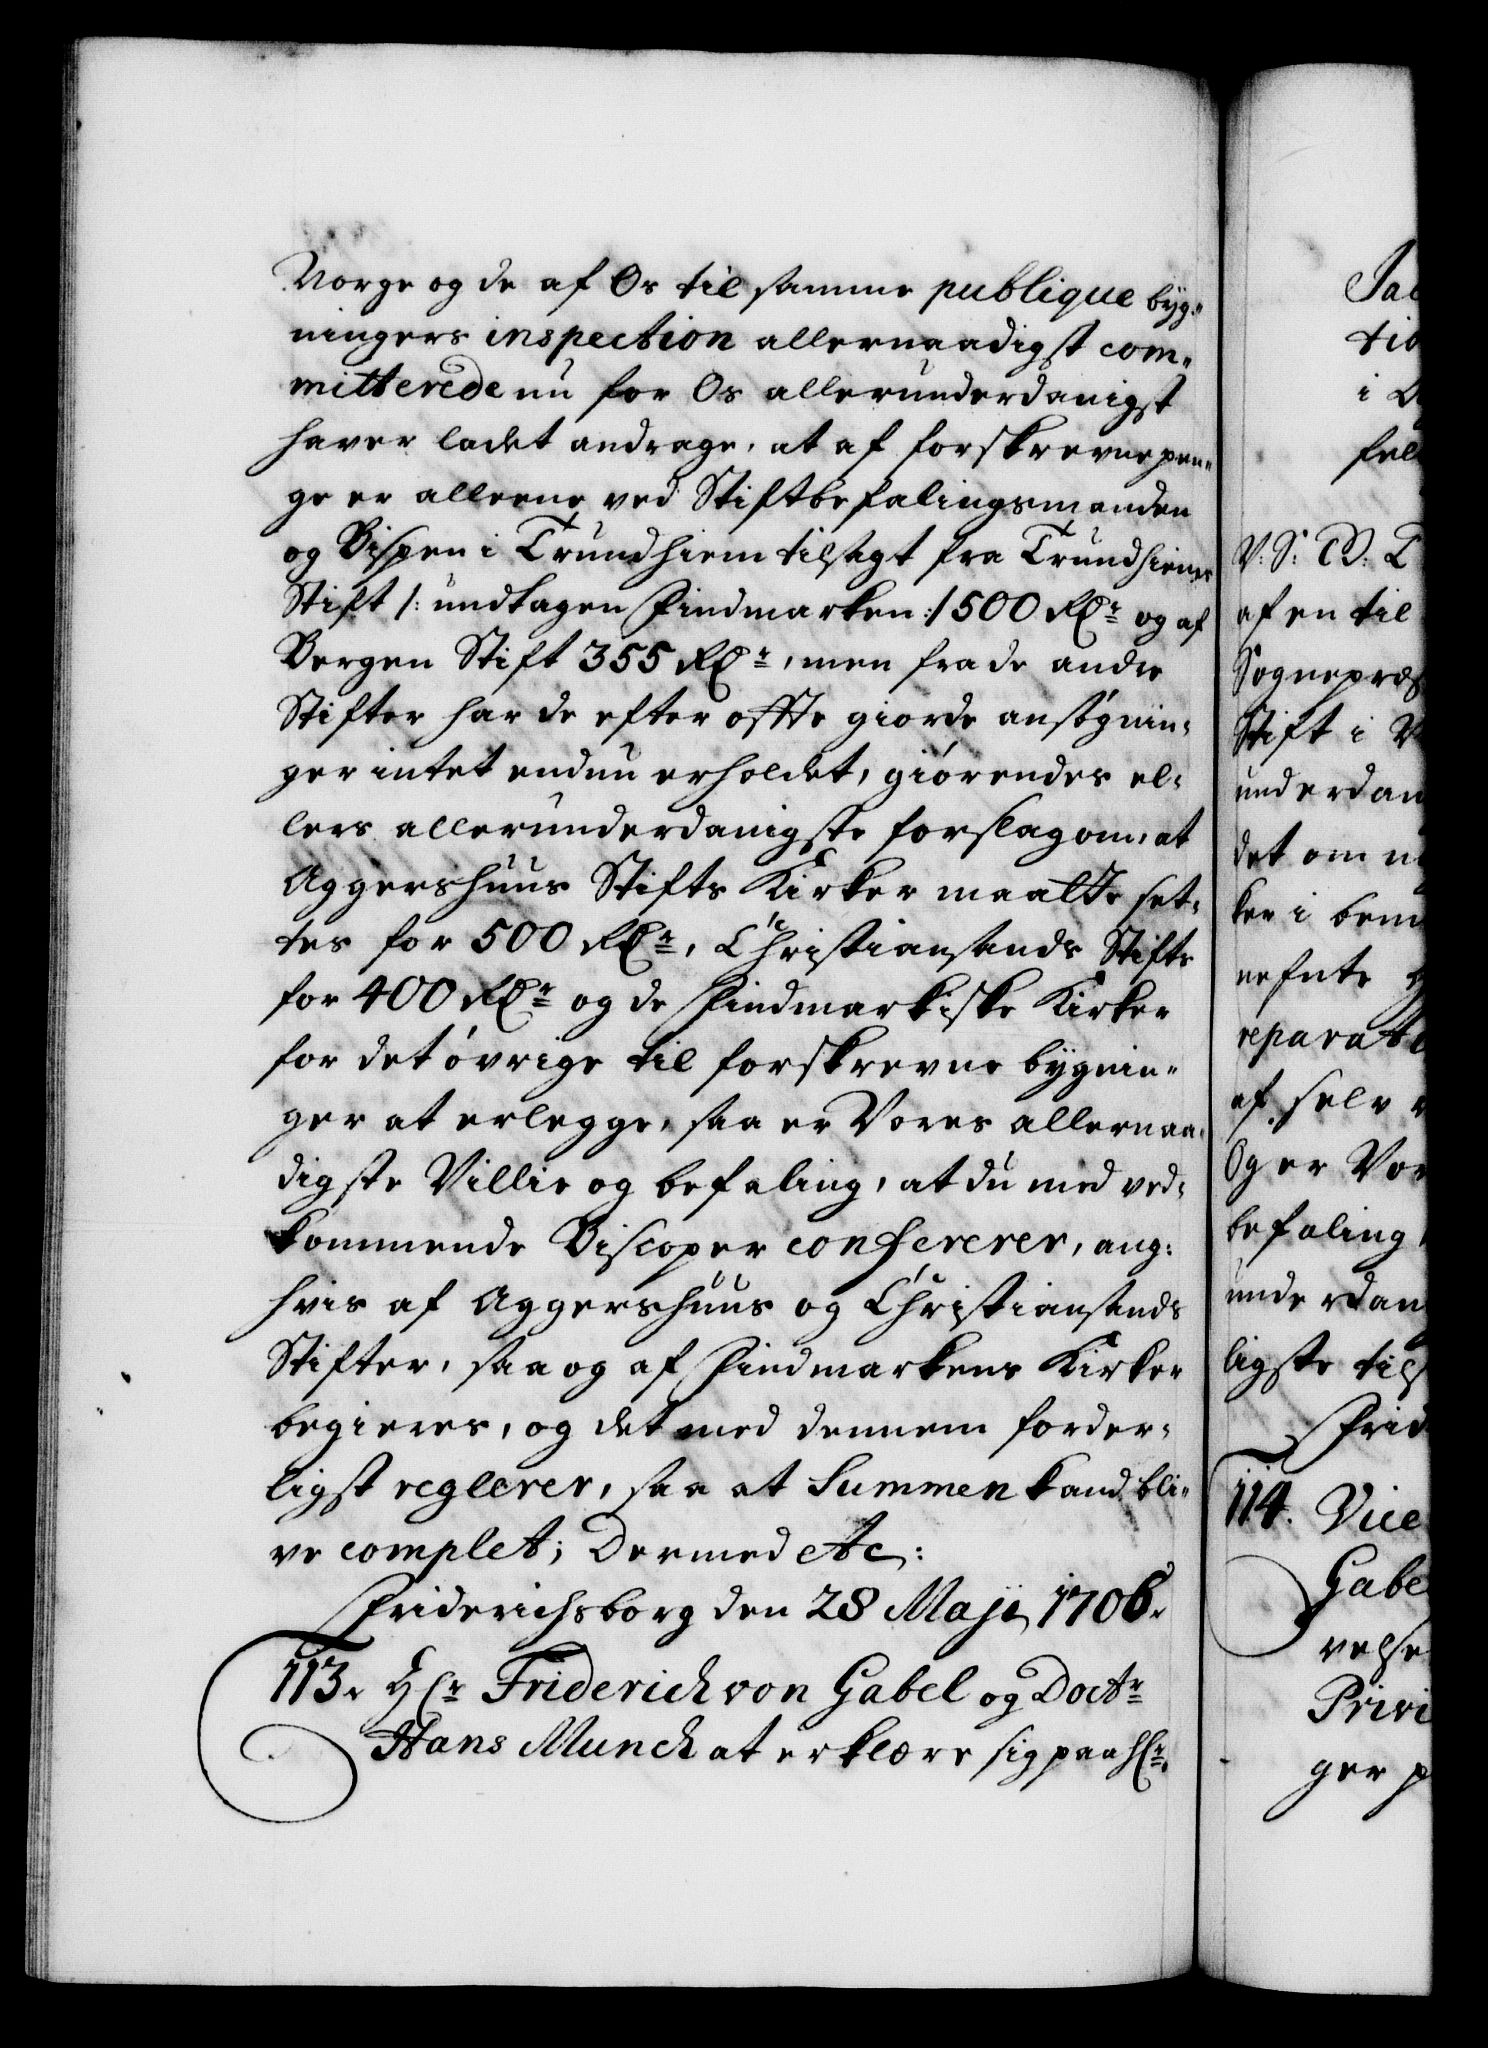 Norge og de af Os til samme publique byg¬
ningers inspection allernaadigst com¬
mitterede nu for Os allerunderdanigst
haver ladet andrage, at af forskrevne pen¬
ge er alleene ved Stiftbefalingsmanden
og Bispen i Trundhiem tilsagt fra Trundhiems
Stift /: undtagen Findmarken :/ 500 Rdr og af
Bergen Stift 355 Rdr, men fra de andre
Stifter har de efter offte giorde ansøgnin¬
ger intet endnu erholdet, giørendes el¬
lers allerunderdanigste forslag om, at
Aggershuus Stifts Kirker maatte set¬
tes for 500 Rdr, Christiansands Stifts
for 400 Rdr og de Findmarkiske Kirker
for det øvrige til forskrevne bygnin¬
ger at erlegge, saa er Vores allernaa¬
digste Villie og befaling, at du med ved¬
kommende Biscoper confererer, ang:
hvis af Aggershuus og Christiansands
Stifter, saa og af Findmarkens Kirker
begieres, og det med dennem forder¬
ligst reglerer, saa at Summen kand bli¬
ve complet; Dermed etc:
Friderichsborg den 28 Maji 1706.
113. Hr Friderich von Gabel og Doctr
Hans Munch at erklære sig paa Hr.
Jac
tio
i A
fel
V: S: G: T
af en til
Sognepræs
Stift i N
underdan
det om
ker i bem
nefnte
reparati
af selv
Og er Vor
befaling
underdan
ligste tils
Frid
114. Vice
Gabe
velse
Privi
ger p